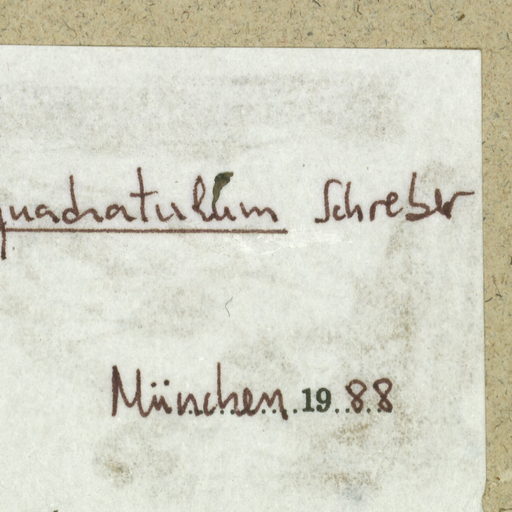 quadratulum Schreber
München 1988